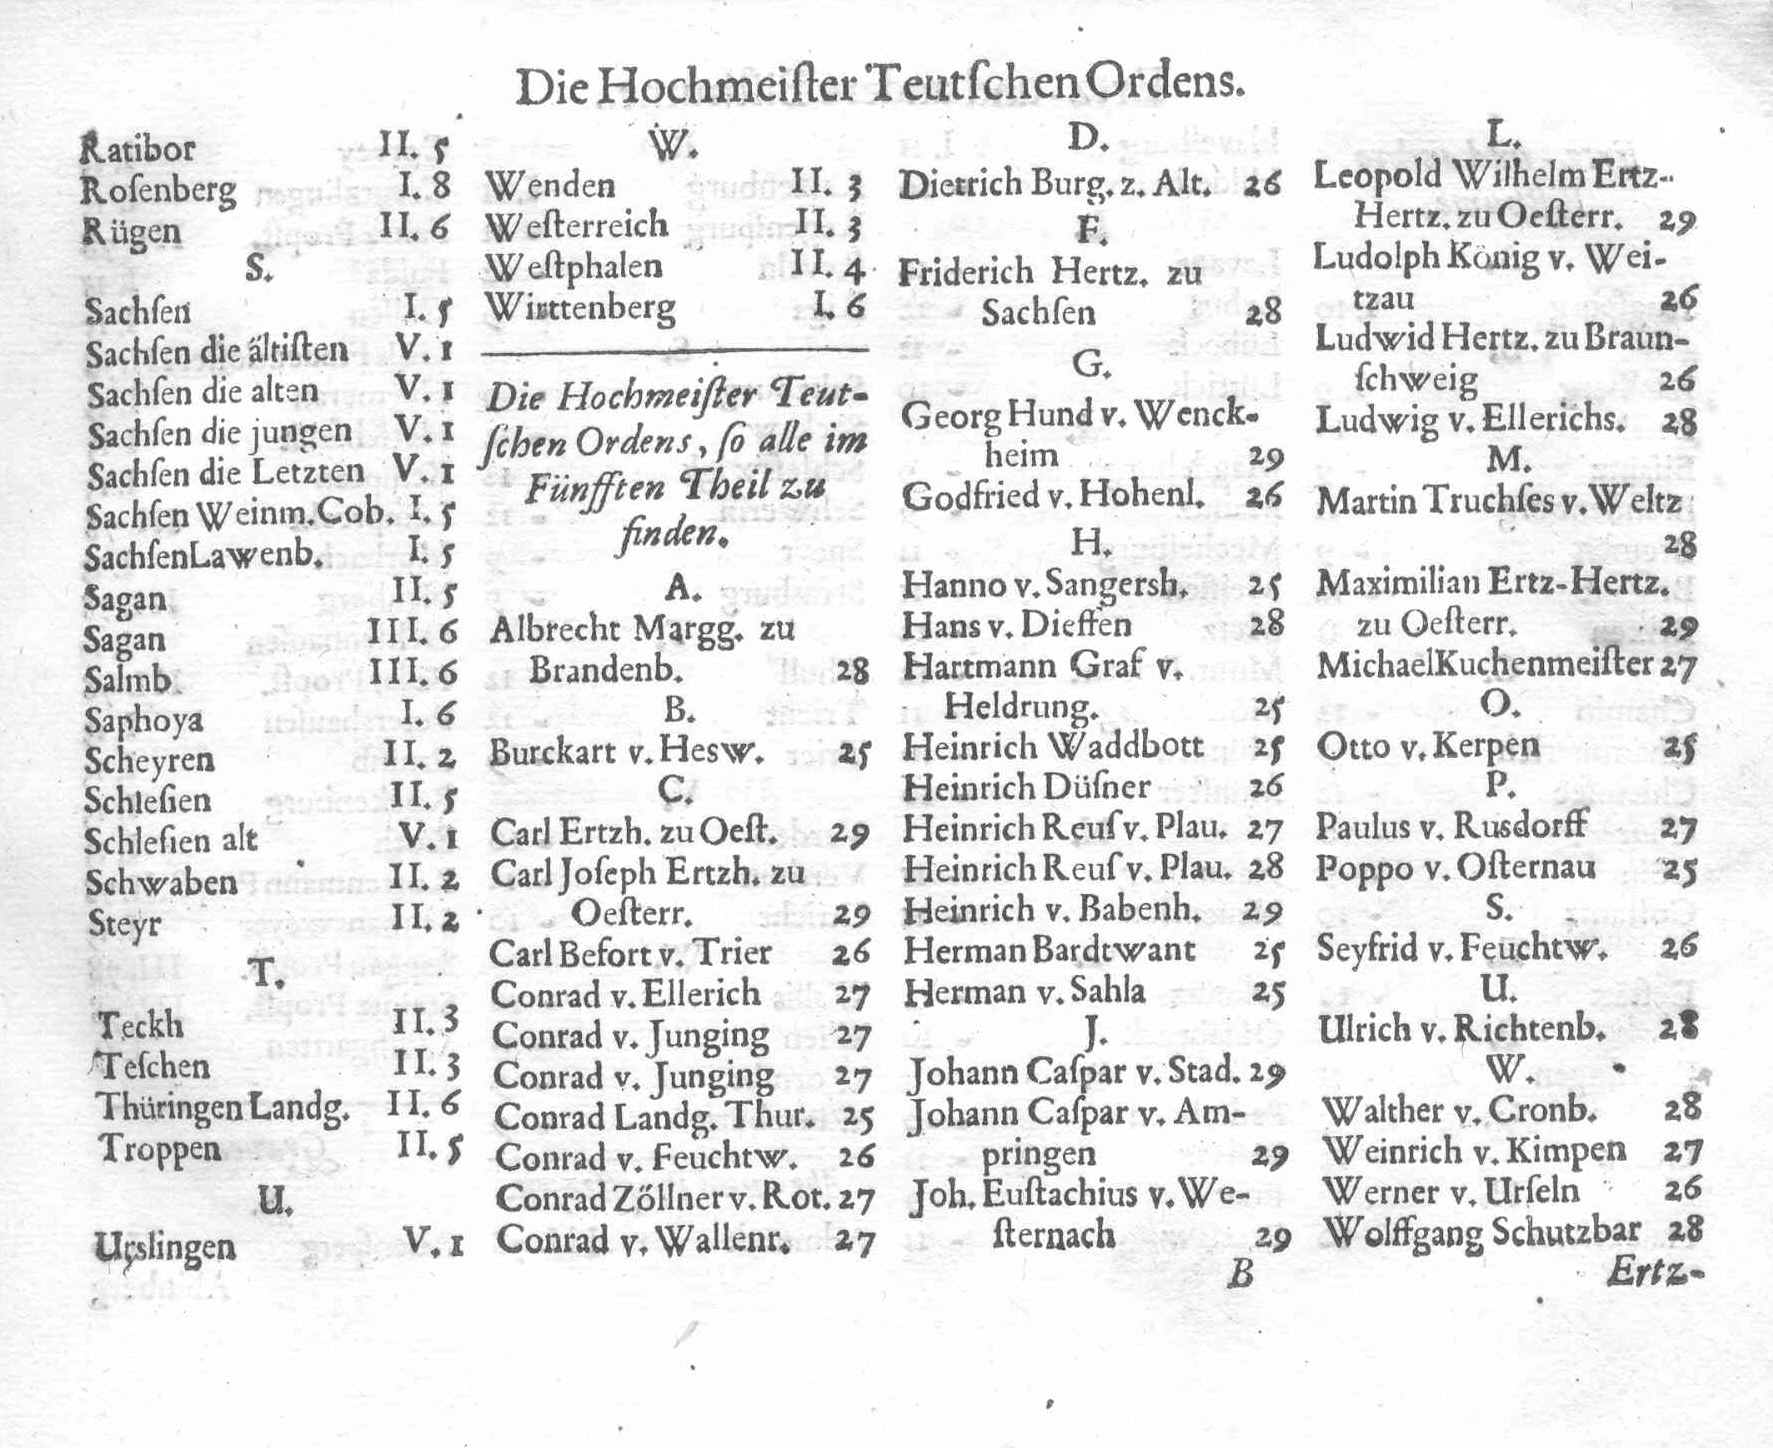 Die Hochmeiſter Teutſchen Ordens.
Ratibor II. 5
Roſenberg I. 8
Rügen II. 6
S.
Sachſen I. 5
Sachſen die ältiſten V. 1
Sachſen die alten V. 1
Sachſen die jungen V. 1
Sachſen die Letzten V. 1
Sachſen Weinm. Cob. I. 5
Sachſen Lawenb. I. 5
Sagan II. 5
Sagan III. 6
Salmb III. 6
Saphoya I. 6
Scheyren II. 2
Schleſien II. 5
Schleſien alt V. 1
Schwaben II. 2
Steyr II. 2
T.
Teckh II. 3
Teſchen II. 3
Thüringen Landg. II. 6
Troppen II. 5
U.
Urslingen V. 1
W.
Wenden II. 3
Weſterreich II. 3
Weſtphalen II. 4
Wirttenberg I. 6
Die Hochmeiſter Teut-
ſchen Ordens, ſo alle im
Fünfften Theil zu
finden.
A.
Albrecht Margg. zu
Brandenb. 28
B.
Burckart v. Hesw. 25
C.
Carl Ertzh. zu Oeſt. 29
Carl Joſeph Ertzh. zu
Oeſterr. 29
Carl Befort v. Trier 26
Conrad v. Ellerich 27
Conrad v. Junging 27
Conrad v. Junging 27
Conrad Landg. Thur. 25
Conrad v. Feuchtw. 26
Conrad Zöllner v. Rot. 27
Conrad v. Wallenr. 27
D.
Dietrich Burg. z. Alt. 26
F.
Friderich Hertz. zu
Sachſen 28
G.
Georg Hund v. Wenck-
heim 29
Godfried v. Hohenl. 26
H.
Hanno v. Sangersh. 25
Hans v. Dieffen 28
Hartmann Graf v.
Heldrung. 25
Heinrich Waddbott 25
Heinrich Düſner 26
Heinrich Reuſ v. Plau. 27
Heinrich Reuſ v. Plau. 28
Heinrich v. Babenh. 29
Herman Bardtwant 25
Herman v. Sahla 25
J.
Johann Caſpar v. Stad. 29
Johann Caſpar v. Am-
pringen 29
Joh. Euſtachius v. We-
ſternach 29
B
L.
Leopold Wilhelm Ertz-
Hertz. zu Oeſterr. 29
Ludolph König v. Wei-
tzau 26
Ludwid Hertz. zu Braun-
ſchweig 26
Ludwig v. Ellerichs. 28
M.
Martin Truchſes v. Weltz
28
Maximilian Ertz-Hertz.
zu Oeſterr. 29
Michael Kuchenmeiſter 27
O.
Otto v. Kerpen 25
P.
Paulus v. Rusdorff 27
Poppo v. Oſternau 25
S.
Seyfrid v. Feuchtw. 26
U.
Ulrich v. Richtenb. 28
W.
Walther v. Cronb. 28
Weinrich v. Kimpen 27
Werner v. Urſeln 26
Wolffgang Schutzbar 28
Ertz-